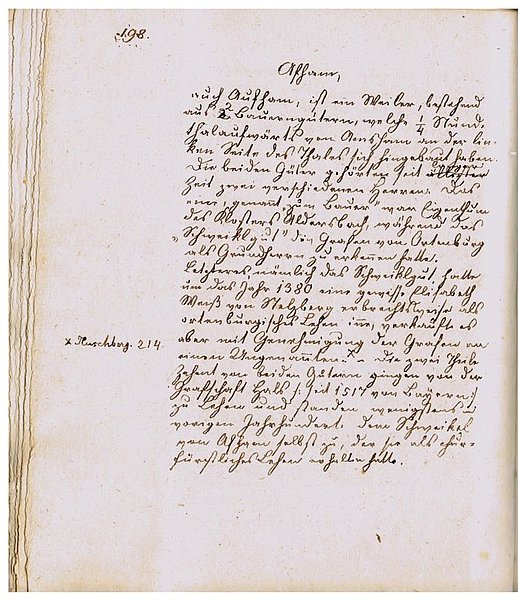 198.
Afham,
auch Aufham, ist ein Weiler, bestehend
aus 2 Bauerngütern, welche 1/4 Stund
thalaufwärts von Amsham an der lin-
ken Seite des Thales sich hingebaut haben.
Die beiden Güter gehörten seit
Zeit zwei verschiedenen Herren. Das
eine, genannt "zum Bauer" war Eigenthum
des Klosters Aldersbach, während das
"Schweiklgut" die Grafen von Ortenburg
als Grundherrn zu erkennen hatte.
Letzteres, nämlich das Schweiklgut hatte
um das Jahr 1380 eine gewisse Elisabeth
Weiß von erbrechtsweise als
ortenburgisches Lehen inne, verkaufte es
x Huschberg. 214.
aber mit Genehmigung der Grafen an
einen Ungenannten. x – Die zwei Theile
Zehent von beiden Gütern gingen von der
Grafschaft Hals /: seit 1517 von Bayern :/
zu Lehen und standen wenigstens im
vorigen Jahrhundert dem Schweikel
von Afham selbst zu, der sie als chur-
fürstliches Lehen erhalten hatte.